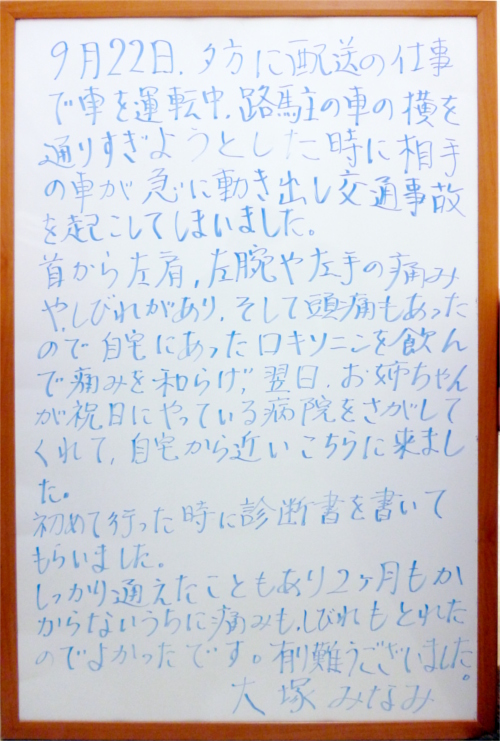 9月22日、夕方に配送の仕事
で車を運転中、路駐の車の横を
通りすぎようとした時に相手
の車が急に動き出し交通事故
を起こしてしまいました。
首から左肩、左腕や左手の痛み
や、しびれがあり、そして頭痛もあった
ので自宅にあったロキソニンを飲ん
で痛みを和らげ、翌日、お姉ちゃん
が祝日にやっている病院をさがして
くれて、自宅から近いこちらに来まし
た。
初めて行った時に診断書を書いて
もらいました。
しっかり通えたこともあり2ヶ月もか
からないうちに痛みも、しびれもとれた
のでよかったです。有難うございました。
大塚みなみ